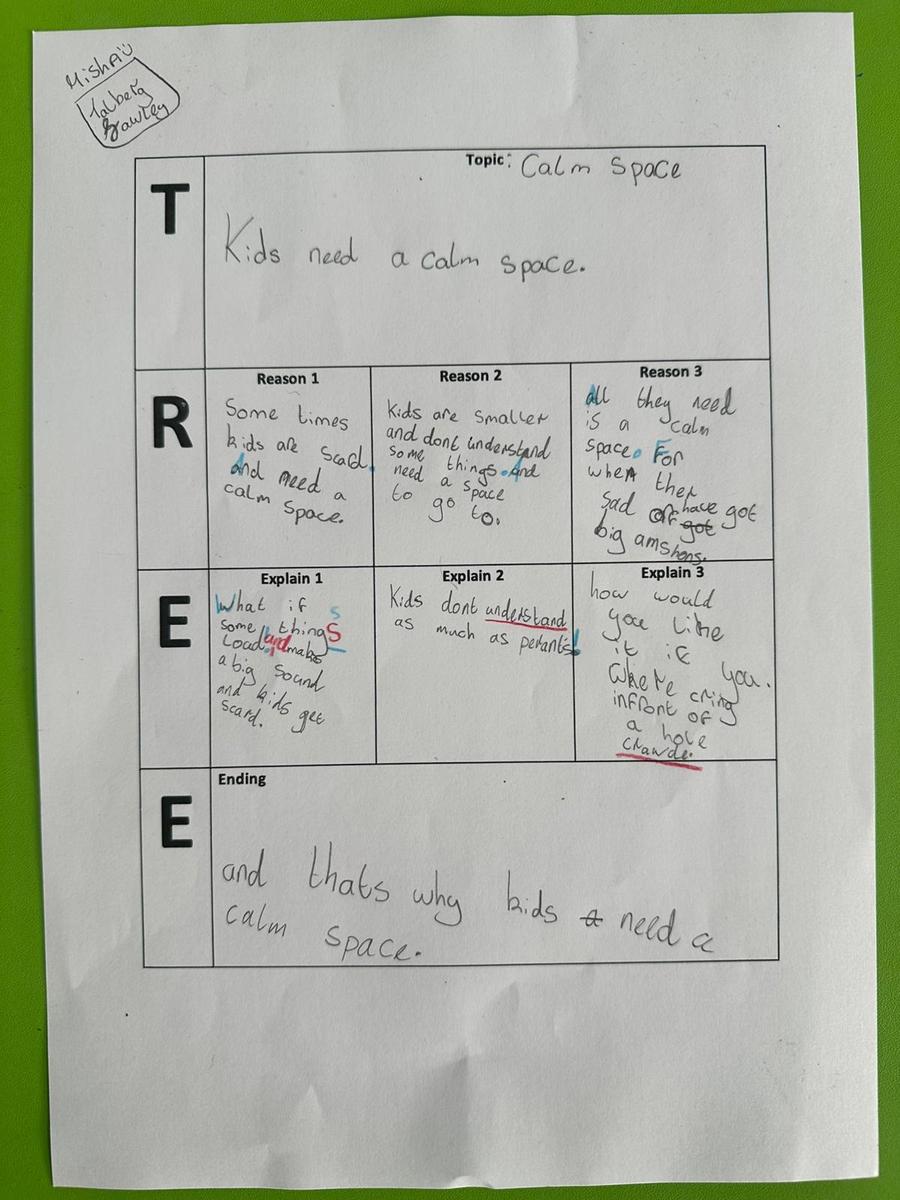 Mishaü
Talberg
Sawley
T
Topic: Calm space
Kids need a calm space.
R
Reason 1
Some times
kids are scard.
And need a
calm space.
Reason 2
kids are smaller
and dont understand
some things. And
need a space
to go to.
Reason 3
all they need
is a calm
space. For
when ther
sad or have got
got
big amshons.
E
Explain 1
What if
some things
Load and make
a big sound
and kids get
scard.
Explain 2
Kids dont understand
as much as perants!
Explain 3
how would
you like
it if you.
where cring
infront of
a hole
crawde.
E
Ending
and thats why kids a need a
calm space.